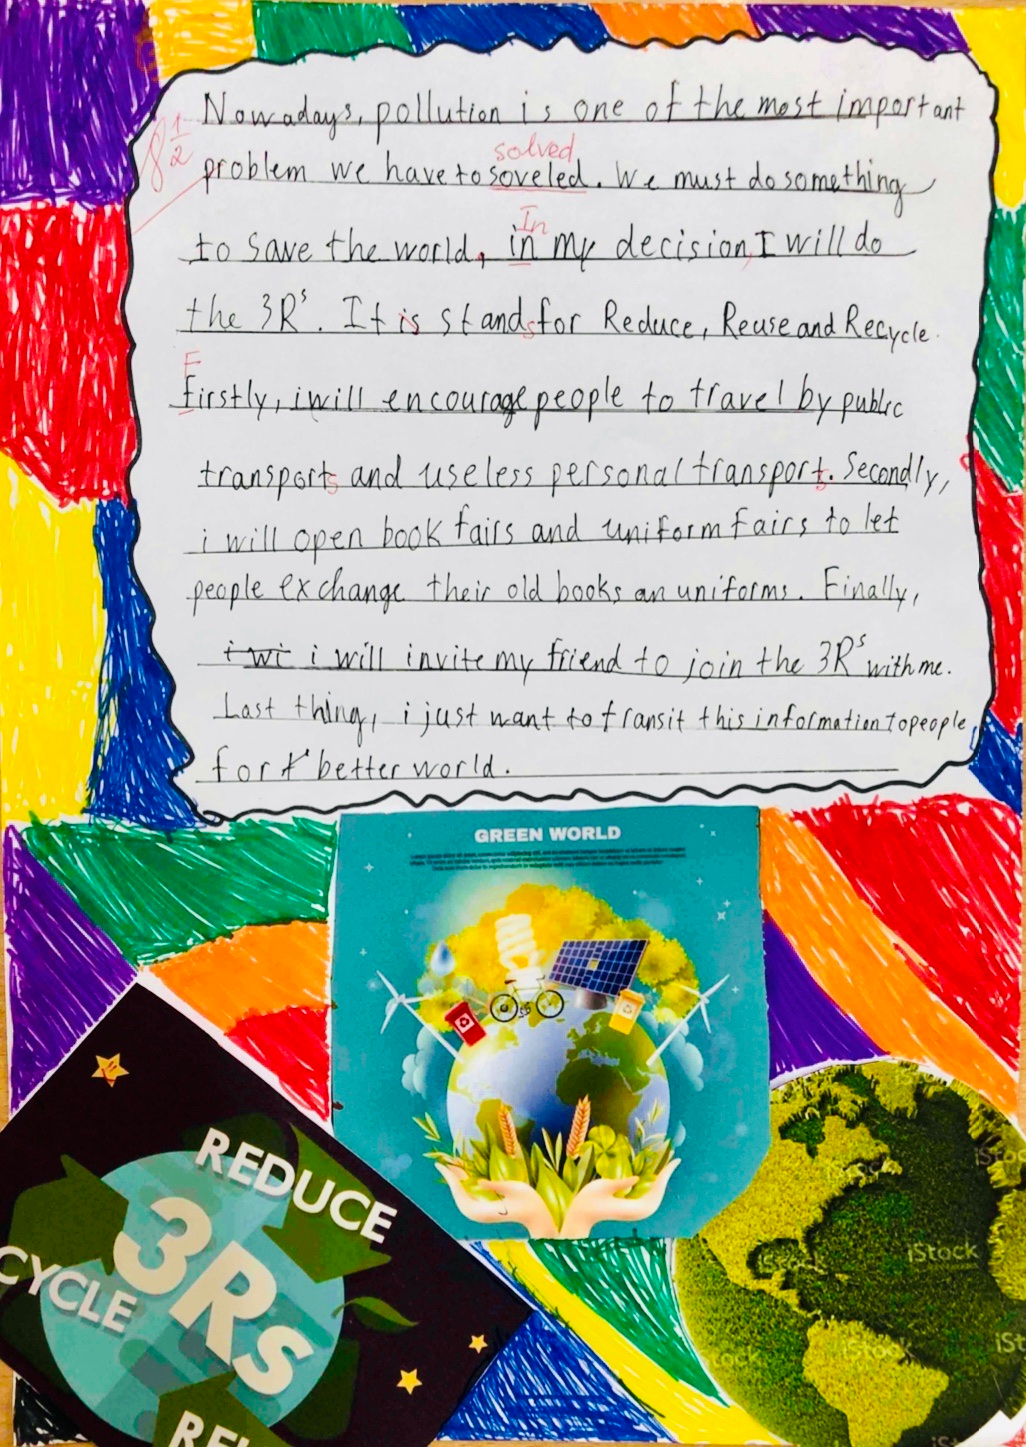 Nowadays, pollution is one of the most important
8 1/2
solved
problem we have to soveled. We must do something
In
to save the world, in my decision, I will do
the 3Rˢ. It is stands for Reduce, Reuse and Recycle.
F
firstly, i will encourage people to travel by public
transports and use less personal transports. Secondly,
i will open book fairs and uniform fairs to let
people exchange their old books an uniforms. Finally,
i wi i will invite my friend to join the 3Rˢ with me.
Last thing, i just want to transit this information to people
for better world.
GREEN WORLD
REDUCE
3Rs
CYCLE
iStock
iStock